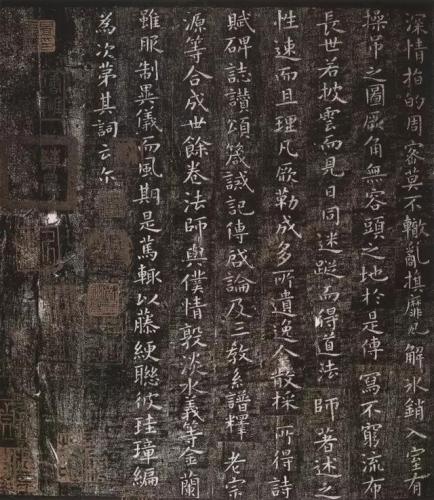 深情指的周密莫不轍亂旗靡瓦解冰銷入室有
操弔之圖厥角無容頭之地於是傳寫不窮流布
長世若披雲而見日同迷蹤而得道法師著述之
性速而且理凡厥勒成多所遺逸今散採所得詩
賦碑誌讚頌箴誡記傳啟論及三教系譜釋老宗
源等合成世餘卷法師與僕情敦淡水義等金蘭
雖服制異儀而風期是篤輒以藤綆聯彼珪璋編
為次第其詞云尔